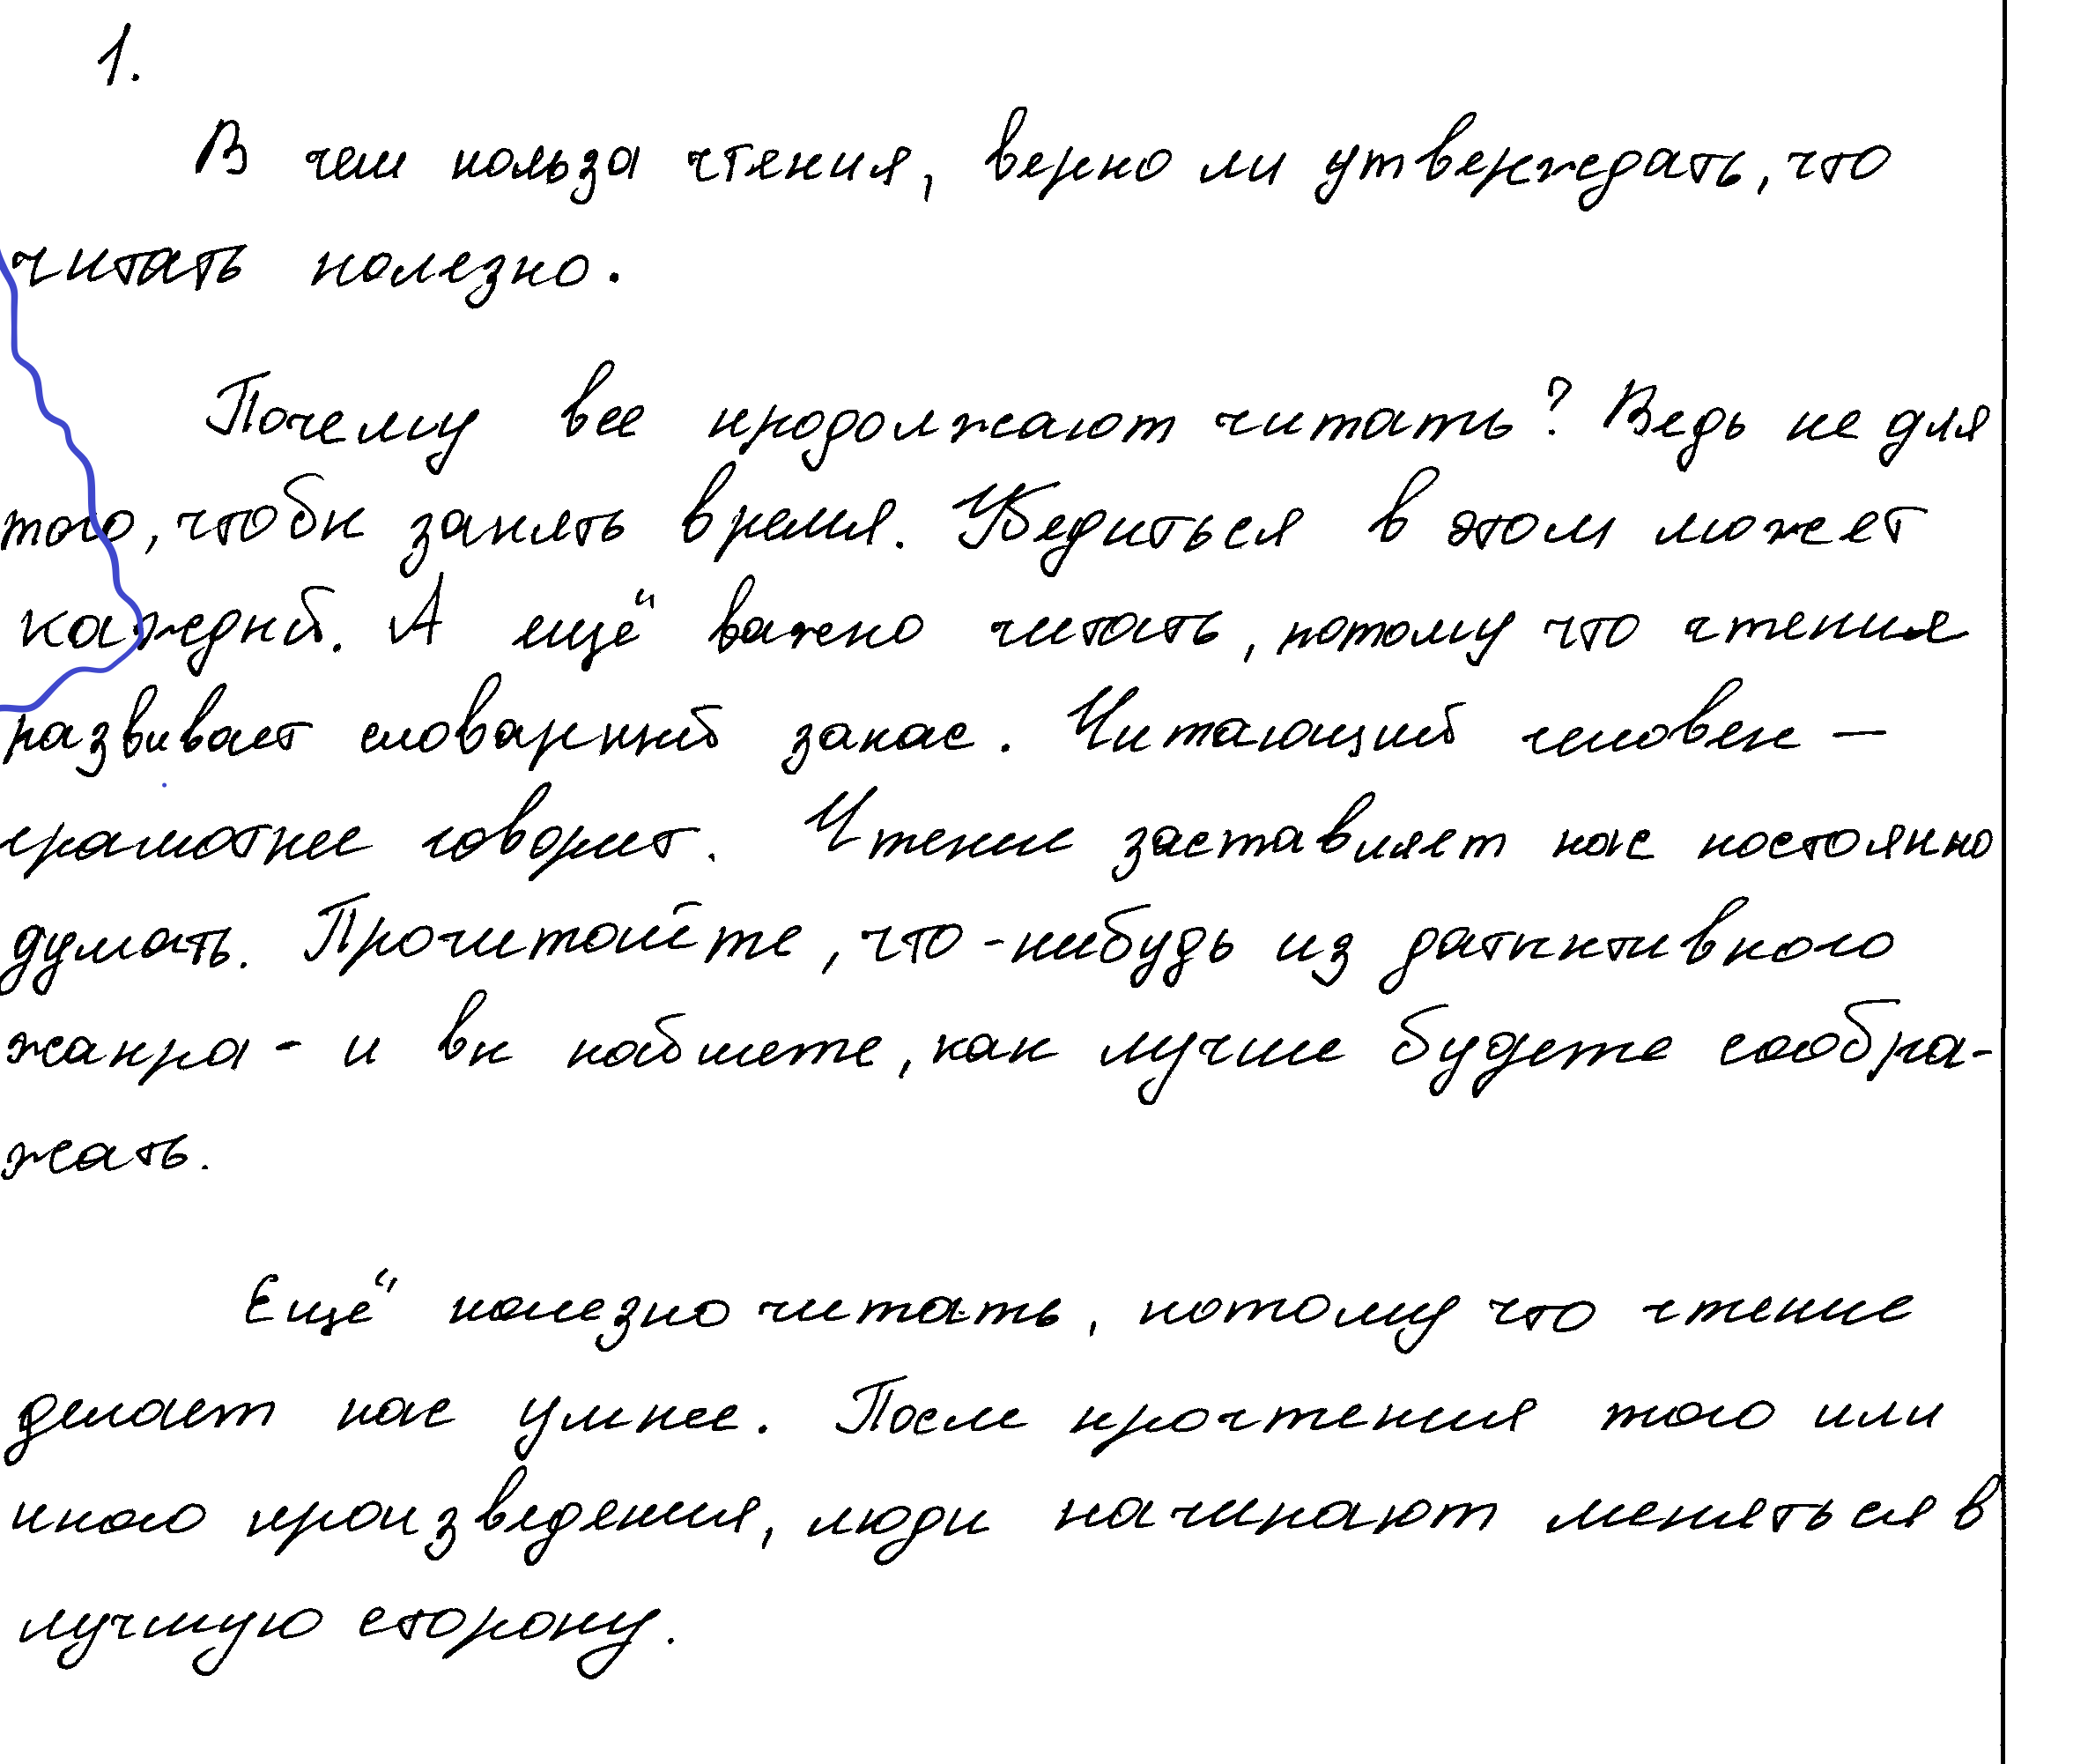 1.
В чем польза чтения, верно ли утверждать, что
читать полезно.
Почему все продолжают читать? Ведь не для
того, чтобы занять время. Убедиться в этом может
каждый. А ещё важно читать, потому что чтения
развивает словарный запас. Читающий человек –
грамотнее говорит. Чтение заставляет нас постоянно
думать. Прочитайте, что-нибудь из датективного
жанра - и вы поймете, как лучше будете сообра-
жать.
Ещё полезно читать, потому что чтение
делает нас умнее. После прочтения того или
иного произведения, люди начинают меняться в
лучшую сторону.